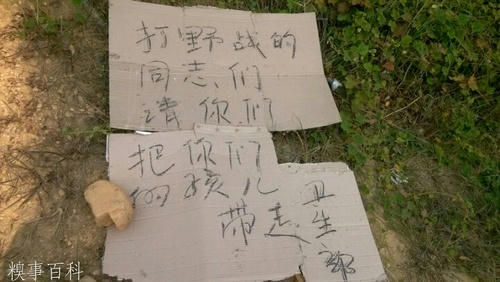 打野战的
同志们
请你们
把你们
的孩儿
带走
卫生部
糗事百科